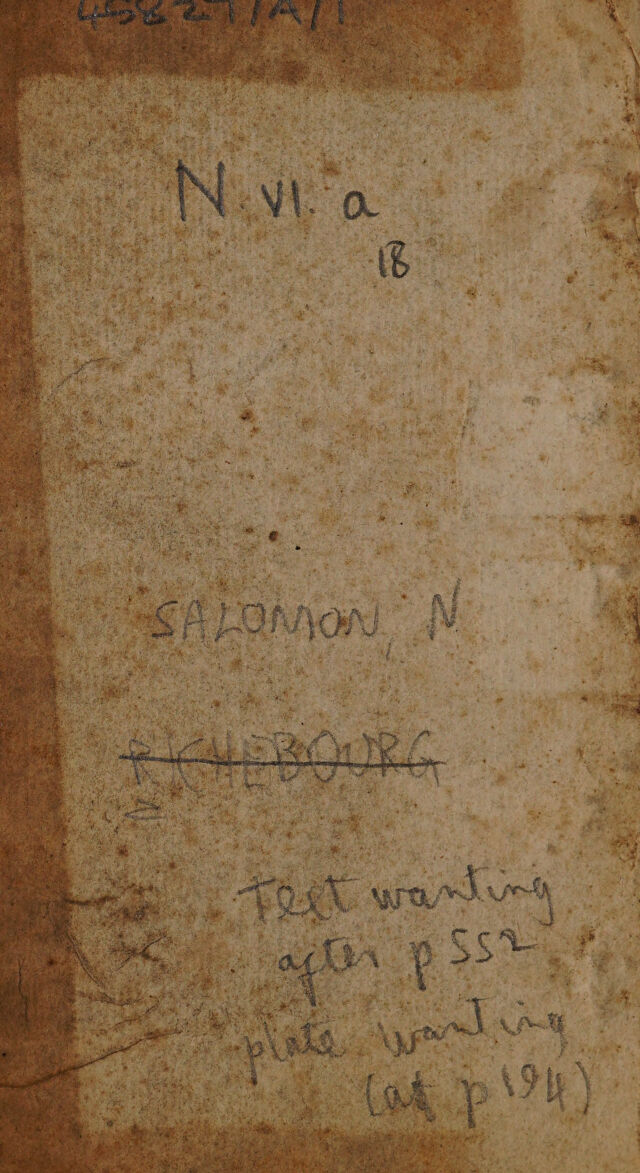 45827/A/1
N. VI. a
18
SALOMON, N
RICHEBOURG
Text wanting
after p 552
plate wanting
(at p 194)